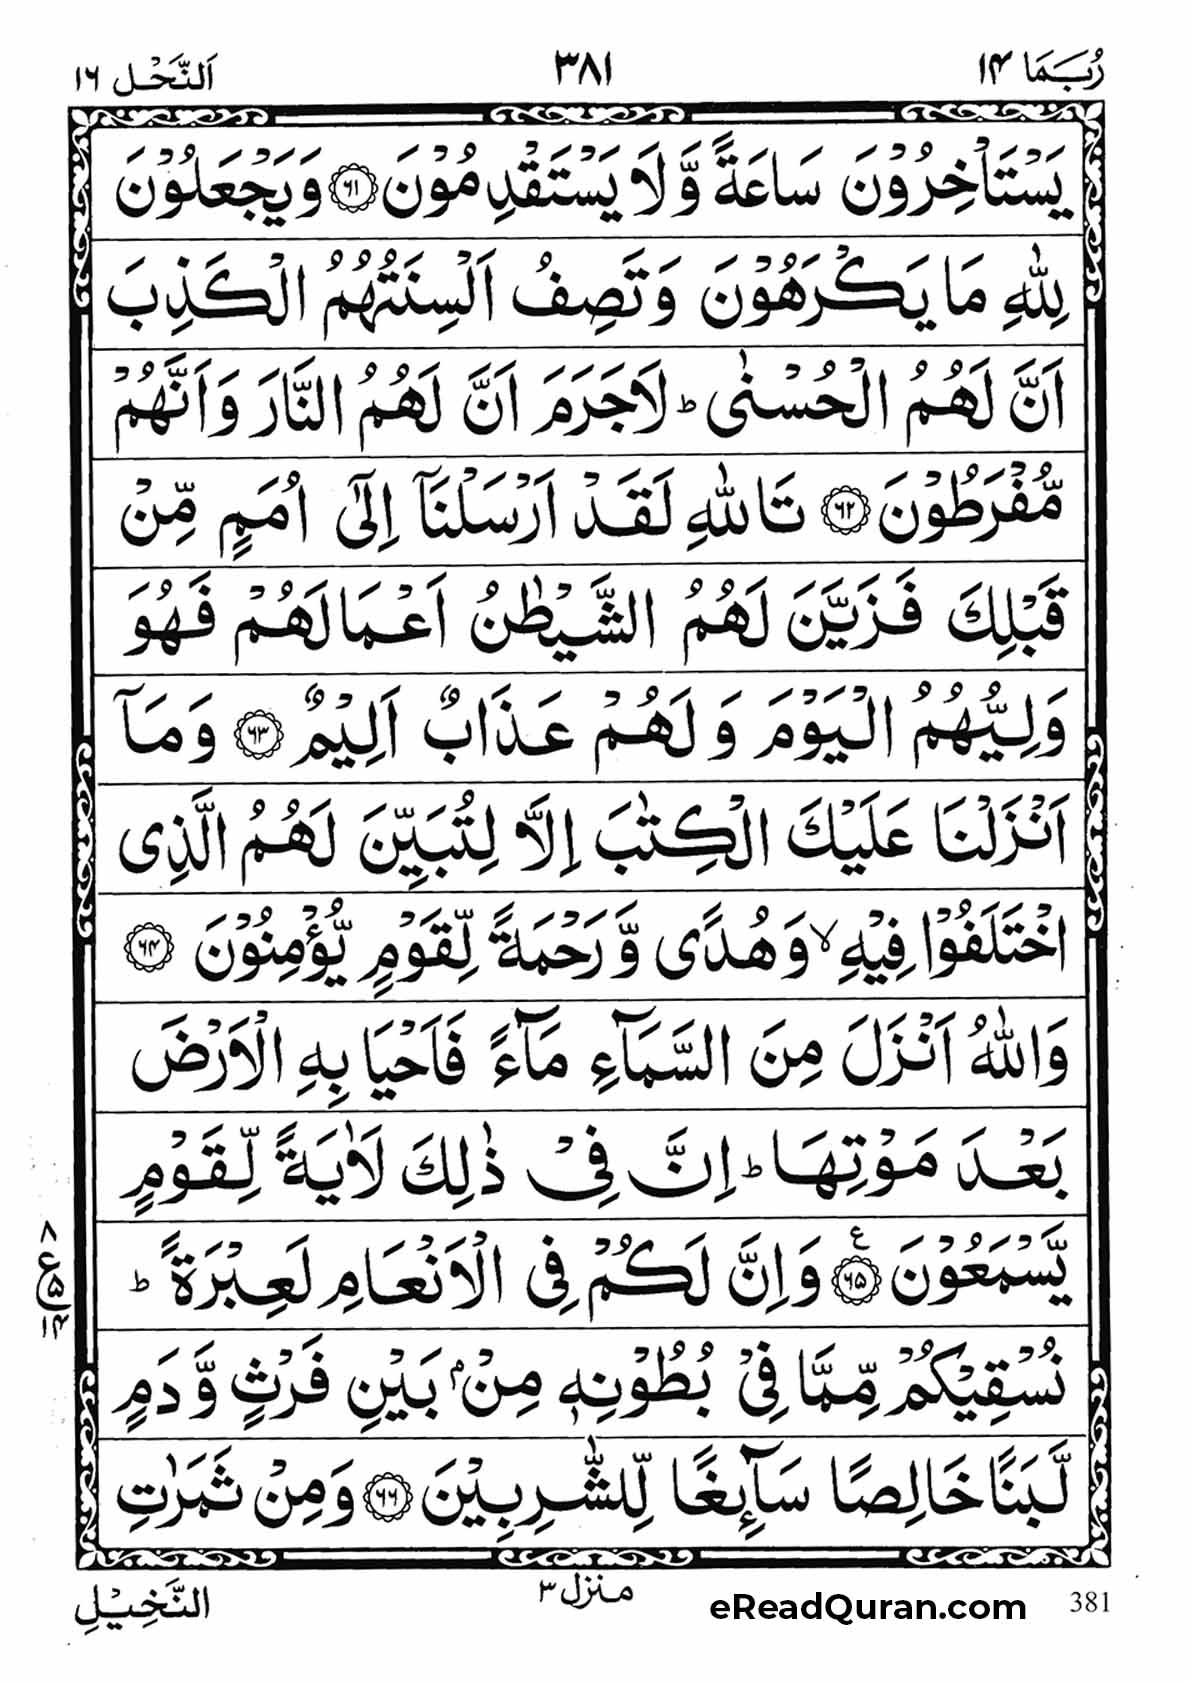 رُبَمَا ١٤
٣٨١
اَلنَّحْل ١٦
يَسْتَاْخِرُوْنَ سَاعَةً وَّلَا يَسْتَقْدِمُوْنَ ﴿٦١﴾ وَيَجْعَلُوْنَ
لِلّٰهِ مَا يَكْرَهُوْنَ وَتَصِفُ اَلْسِنَتُهُمُ الْكَذِبَ
اَنَّ لَهُمُ الْحُسْنٰى ؕ لَاجَرَمَ اَنَّ لَهُمُ النَّارَ وَاَنَّهُمْ
مُّفْرَطُوْنَ ﴿٦٢﴾ تَاللّٰهِ لَقَدْ اَرْسَلْنَاۤ اِلٰۤى اُمَمٍ مِّنْ
قَبْلِكَ فَزَيَّنَ لَهُمُ الشَّيْطٰنُ اَعْمَالَهُمْ فَهُوَ
وَلِيُّهُمُ الْيَوْمَ وَلَهُمْ عَذَابٌ اَلِيْمٌ ﴿٦٣﴾ وَمَاۤ
اَنْزَلْنَا عَلَيْكَ الْكِتٰبَ اِلَّا لِتُبَيِّنَ لَهُمُ الَّذِى
اخْتَلَفُوْا فِيْهِ ۙ وَهُدًى وَّرَحْمَةً لِّقَوْمٍ يُّؤْمِنُوْنَ ﴿٦٤﴾
وَاللّٰهُ اَنْزَلَ مِنَ السَّمَآءِ مَآءً فَاَحْيَا بِهِ الْاَرْضَ
بَعْدَ مَوْتِهَا ؕ اِنَّ فِىْ ذٰلِكَ لَاٰيَةً لِّقَوْمٍ
يَّسْمَعُوْنَ ﴿٦٥﴾ ع وَاِنَّ لَكُمْ فِى الْاَنْعَامِ لَعِبْرَةً ؕ
٨ ع ٥ ١٤
نُسْقِيْكُمْ مِّمَّا فِىْ بُطُوْنِهٖ مِنْۢ بَيْنِ فَرْثٍ وَّدَمٍ
لَّبَنًا خَالِصًا سَآئِغًا لِّلشّٰرِبِيْنَ ﴿٦٦﴾ وَمِنْ ثَمَرٰتِ
النَّخِيْلِ
منزل ٣
eReadQuran.com
381